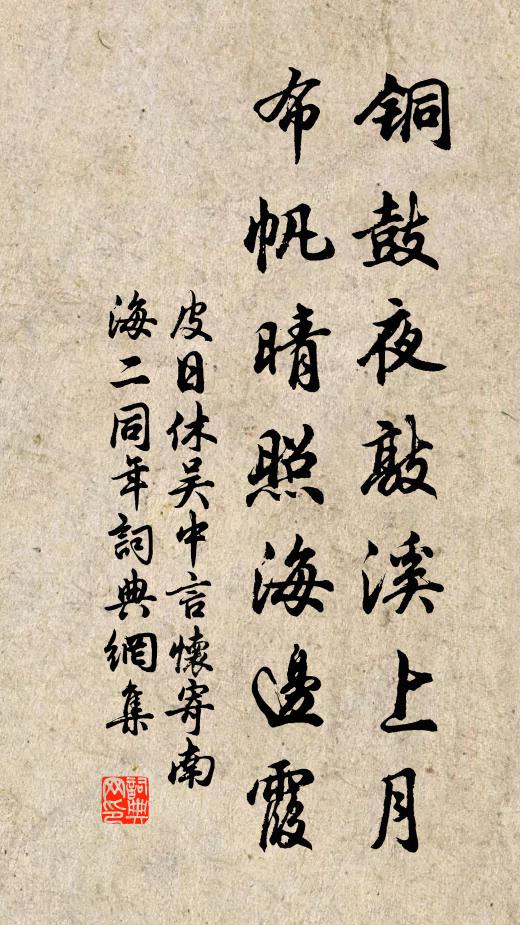 銅鼓夜敲溪上月
布帆晴照海邊霞
皮日休吳中言懷寄南
海二同年詞典網集
詞典网印